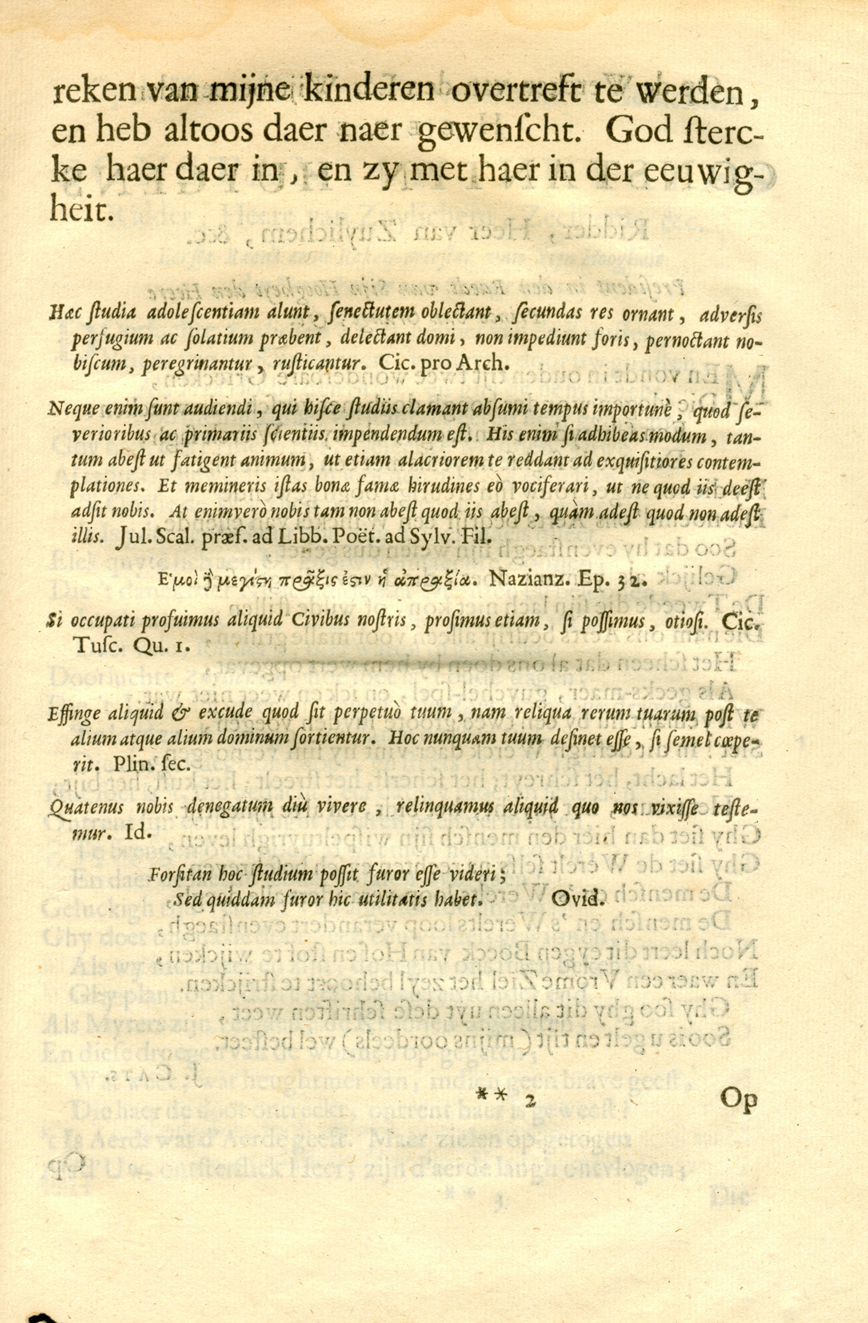 reken van mijne kinderen overtreft te werden,
en heb altoos daer naer gewenſcht. God ſterc-
ke haer daer in, en zy met haer in der eeuwig-
heit.
Hæc ſtudia adoleſcentiam alunt, ſenectutem oblectant, ſecundas res ornant, adverſis
perfugium ac ſolatium præbent, delectant domi, non impediunt foris, pernoctant no-
biſcum, peregrinantur, ruſticantur. Cic. pro Arch.
Neque enim ſunt audiendi, qui hiſce ſtudiis clamant abſumi tempus importunè, quod ſe-
verioribus ac primariis ſcientiis impendendum eſt. His enim ſi adhibeas modum, tan-
tum abeſt ut fatigent animum, ut etiam alacriorem te reddant ad exquiſitiores contem-
plationes. Et memineris iſtas bonæ famæ hirudines eò vociferari, ut ne quod iis deeſt
adſit nobis. At enimverò nobis tam non abeſt quod iis abeſt, quàm adeſt quod non adeſt
illis. Jul. Scal. præf. ad Libb. Poët. ad Sylv. Fil.
Ἐμοὶ ἢ μεγίϛη πρᾶξις ἐϛιν ἡ ἀπραξία. Nazianz. Ep. 32.
Si occupati profuimus aliquid Civibus noſtris, proſimus etiam, ſi poſſimus, otioſi. Cic.
Tuſc. Qu. 1.
Effinge aliquid & excude quod ſit perpetuò tuum, nam reliqua rerum tuarum poſt te
alium atque alium dominum ſortientur. Hoc nunquam tuum deſinet eſſe, ſi ſemel cœpe-
rit. Plin. ſec.
Quatenus nobis denegatum diù vivere, relinquamus aliquid quo nos vixiſſe teſte-
mur. Id.
Forſitan hoc ſtudium poſſit furor eſſe videri;
Sed quiddam furor hic utilitatis habet. Ovid.
** 2 Op